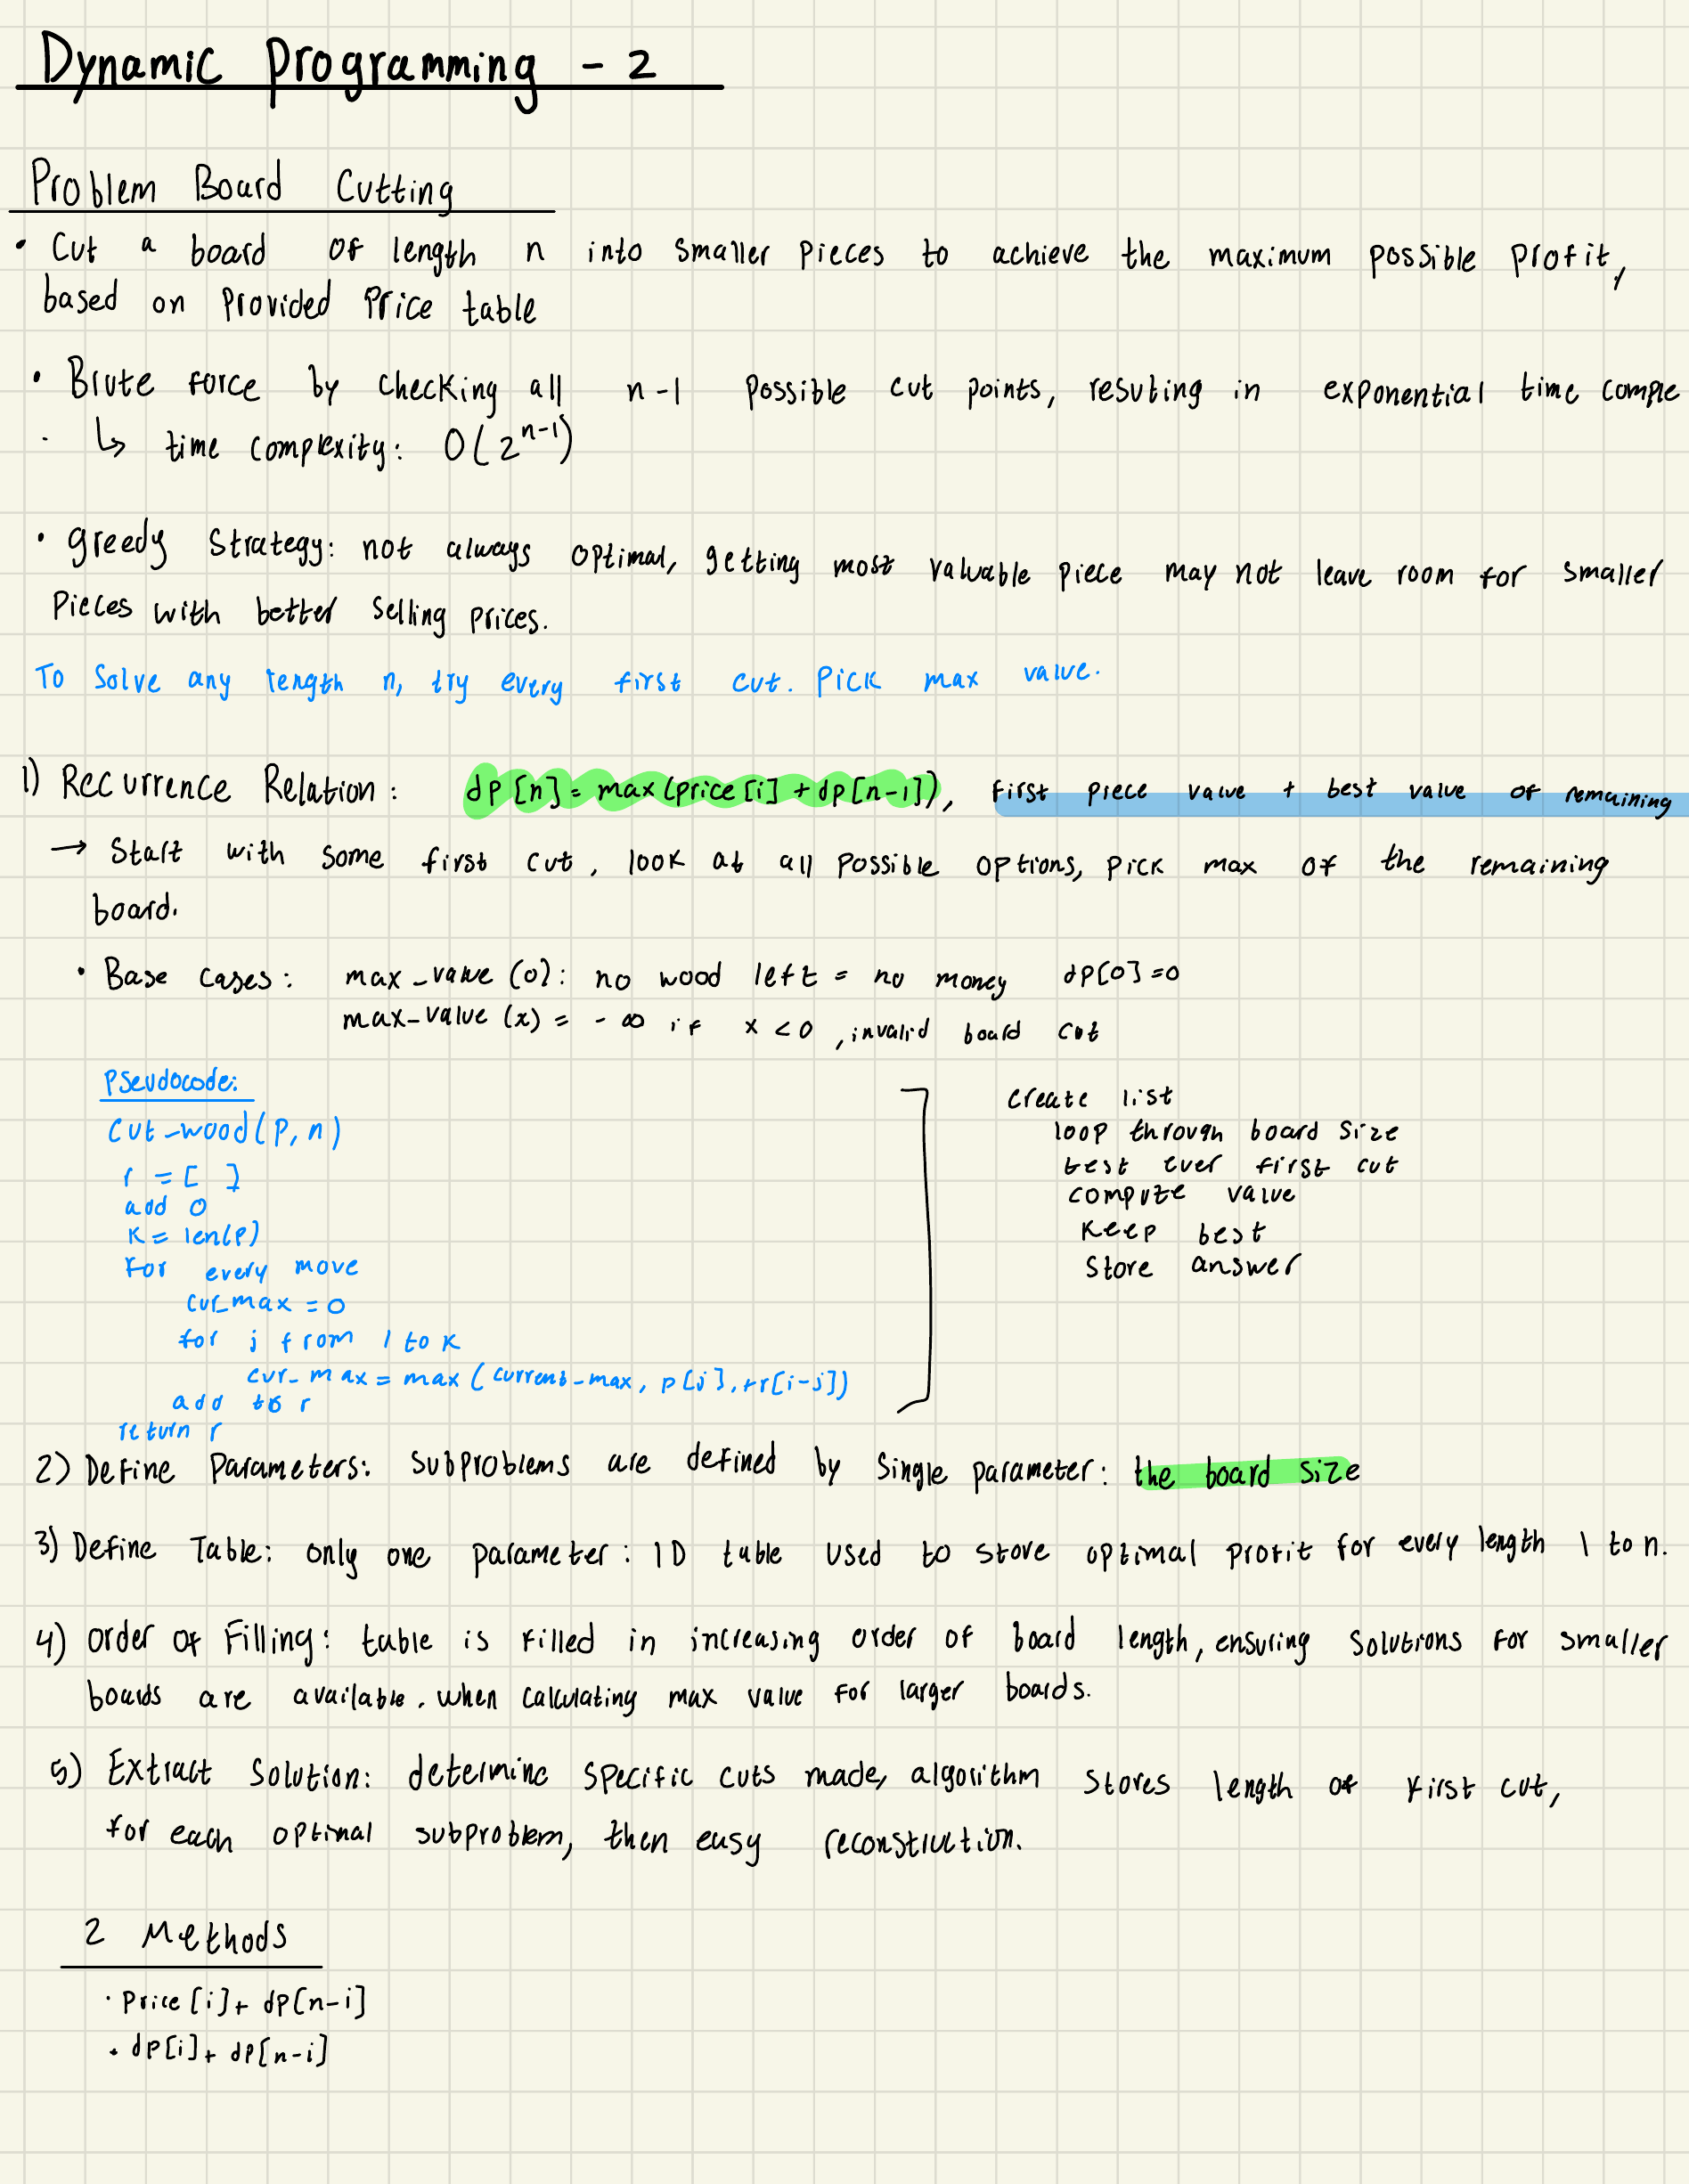 Dynamic Programming - 2
Problem Board Cutting
• Cut a board of length n into smaller pieces to achieve the maximum possible profit,
based on provided price table
• Brute force by checking all n-1 possible cut points, resuting in exponential time comple
↳ time complexity: O(2^n-1)
• greedy strategy: not always optimal, getting most valuable piece may not leave room for smaller
pieces with better selling prices.
To solve any length n, try every first cut. Pick max value.
1) Recurrence Relation: dp[n] = max(price[i] + dp[n-i]), first piece value + best value of remaining
→ Start with some first cut, look at all possible options, pick max of the remaining
board.
• Base cases: max_value(0): no wood left = no money dp[0]=0
max_value(x) = -∞ if x<0, invalid board cut
Pseudocode:
cut_wood(p,n)
r = [ ]
add 0
k = len(p)
for every move
cur_max = 0
for j from 1 to k
cur_max = max(current_max, p[j], +r[i-j])
add to r
return r
create list
loop through board size
test ever first cut
compute value
keep best
store answer
2) Define Parameters: subproblems are defined by single parameter: the board size
3) Define Table: only one parameter: 1D table used to store optimal profit for every length 1 to n.
4) Order of Filling: table is filled in increasing order of board length, ensuring solutions for smaller
boards are available. when calculating max value for larger boards.
5) Extract Solution: determine specific cuts made, algorithm stores length of first cut,
for each optimal subproblem, then easy reconstruction.
2 Methods
• price[i] + dp[n-i]
• dp[i] + dp[n-i]